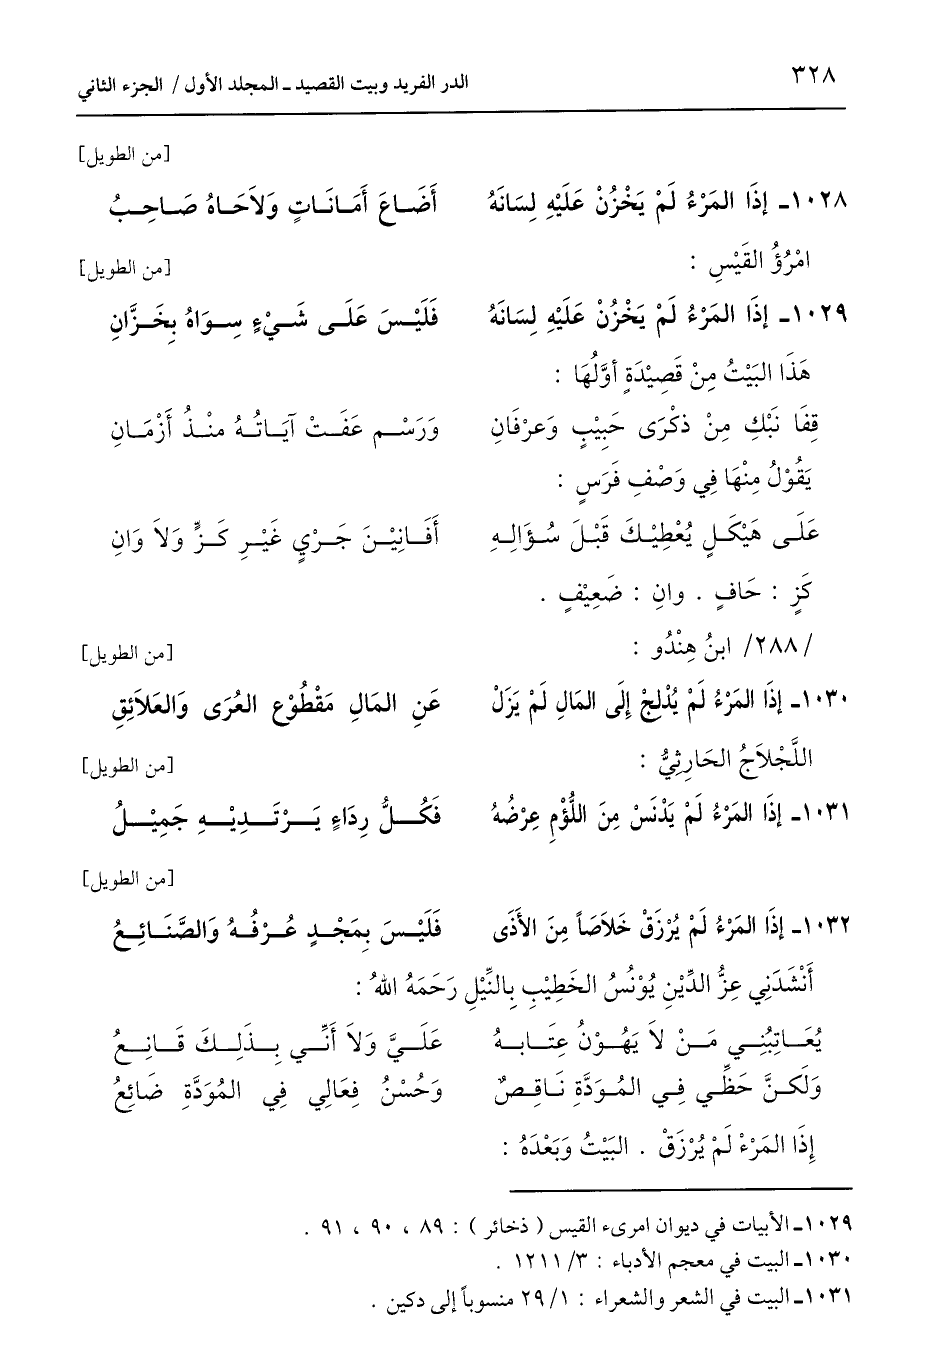 ٣٢٨ الدر الفريد وبيت القصيد ـ المجلد الأول / الجزء الثاني
[من الطويل]
١٠٢٨ـ إِذَا المَرْءُ لَمْ يَخْزُنْ عَلَيْهِ لِسَانَهُ أَضَاعَ أَمَانَاتٍ وَلاَحَاهُ صَاحِبُ
امْرُؤُ القَيْسِ : [من الطويل]
١٠٢٩ـ إِذَا المَرْءُ لَمْ يَخْزُنْ عَلَيْهِ لِسَانَهُ فَلَيْسَ عَلَى شَيْءٍ سِوَاهُ بِخَزَّانِ
هَذَا البَيْتُ مِنْ قَصِيْدَةٍ أوَّلُهَا :
قِفَا نَبْكِ مِنْ ذِكْرَى حَبِيْبٍ وَعرْفَانِ وَرَسْمٍ عَفَتْ آيَاتُهُ مُنْذُ أَزْمَانِ
يَقُوْلُ مِنْهَا فِي وَصْفِ فَرَسٍ :
عَلَى هَيْكَلٍ يُعْطِيْكَ قَبْلَ سُؤَالِهِ أَفَانِيْنَ جَرْيٍ غَيْرِ كَزٍّ وَلاَ وَانِ
كَزٍ : حَافٍ . وانِ : ضَعِيْفٍ .
/٢٨٨/ ابنُ هِنْدُو : [من الطويل]
١٠٣٠ـ إِذَا المَرْءُ لَمْ يُدْلِجْ إِلَى المَالِ لَمْ يَزَلْ عَنِ المَالِ مَقْطُوْعِ العُرَى وَالعَلاَئِقِ
اللَّجْلاَجُ الحَارِثِيُّ : [من الطويل]
١٠٣١ـ إِذَا المَرْءُ لَمْ يَدْنَسْ مِنَ اللُّؤْمِ عِرْضُهُ فَكُلُّ رِدَاءٍ يَرْتَدِيْهِ جَمِيْلُ
[من الطويل]
١٠٣٢ـ إِذَا المَرْءُ لَمْ يُرْزَقْ خَلاَصَاً مِنَ الأَذَى فَلَيْسَ بِمَجْدٍ عُرْفُهُ وَالصَّنَائِعُ
أَنْشَدَنِي عِزُّ الدِّيْنِ يُوْنُسُ الخَطِيْبِ بِالنِّيْلِ رَحَمَهُ اللهُ :
يُعَاتِبُنِي مَنْ لاَ يَهُوْنُ عِتَابهُ عَلَيَّ وَلاَ أَنِّي بِذَلِكَ قَانِعُ
وَلَكنَّ حَظِّي فِي المُوَدَّةِ نَاقِصٌ وَحُسْنُ فِعَالِي فِي المُوَدَّةِ ضَائِعُ
إِذَا المَرْءْ لَمْ يُرْزَقْ . البَيْتُ وَبَعْدَهُ :
١٠٢٩ـ الأبيات في ديوان امرىء القيس ( ذخائر ) : ٨٩ ، ٩٠ ، ٩١ .
١٠٣٠ـ البيت في معجم الأدباء : ٣/ ١٢١١ .
١٠٣١ـ البيت في الشعر والشعراء : ١/ ٢٩ منسوباً إلى دكين .